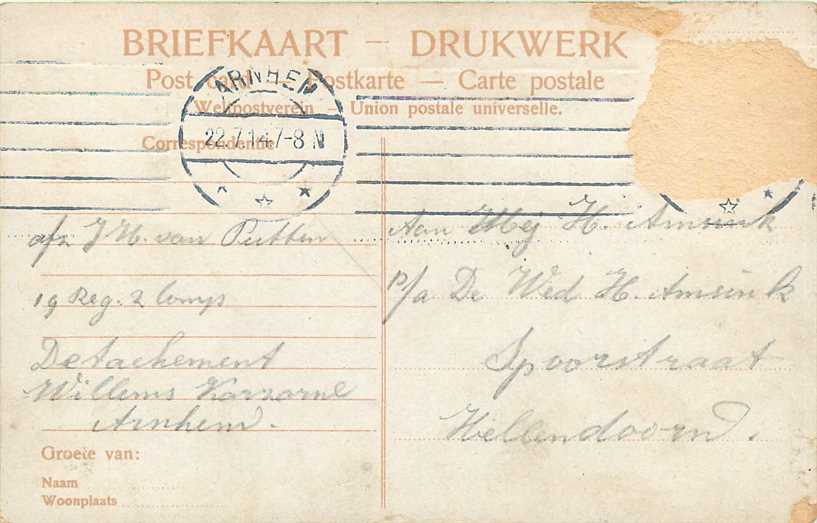 BRIEFKAART — DRUKWERK
Post — Postkarte — Carte postale
Weltpostverein — Union postale universelle.
ARNHEM
22.7.14 7-8 N
Correspondentie
afz J H. van Putten
19 Reg. 2 Comp
Detachement
Willems Kazerne
Arnhem.
Groete van:
Naam
Woonplaats
Aan Mej H. Amsink
p/a De Wed H. Amsink
Spoorstraat
Hellendoorn.